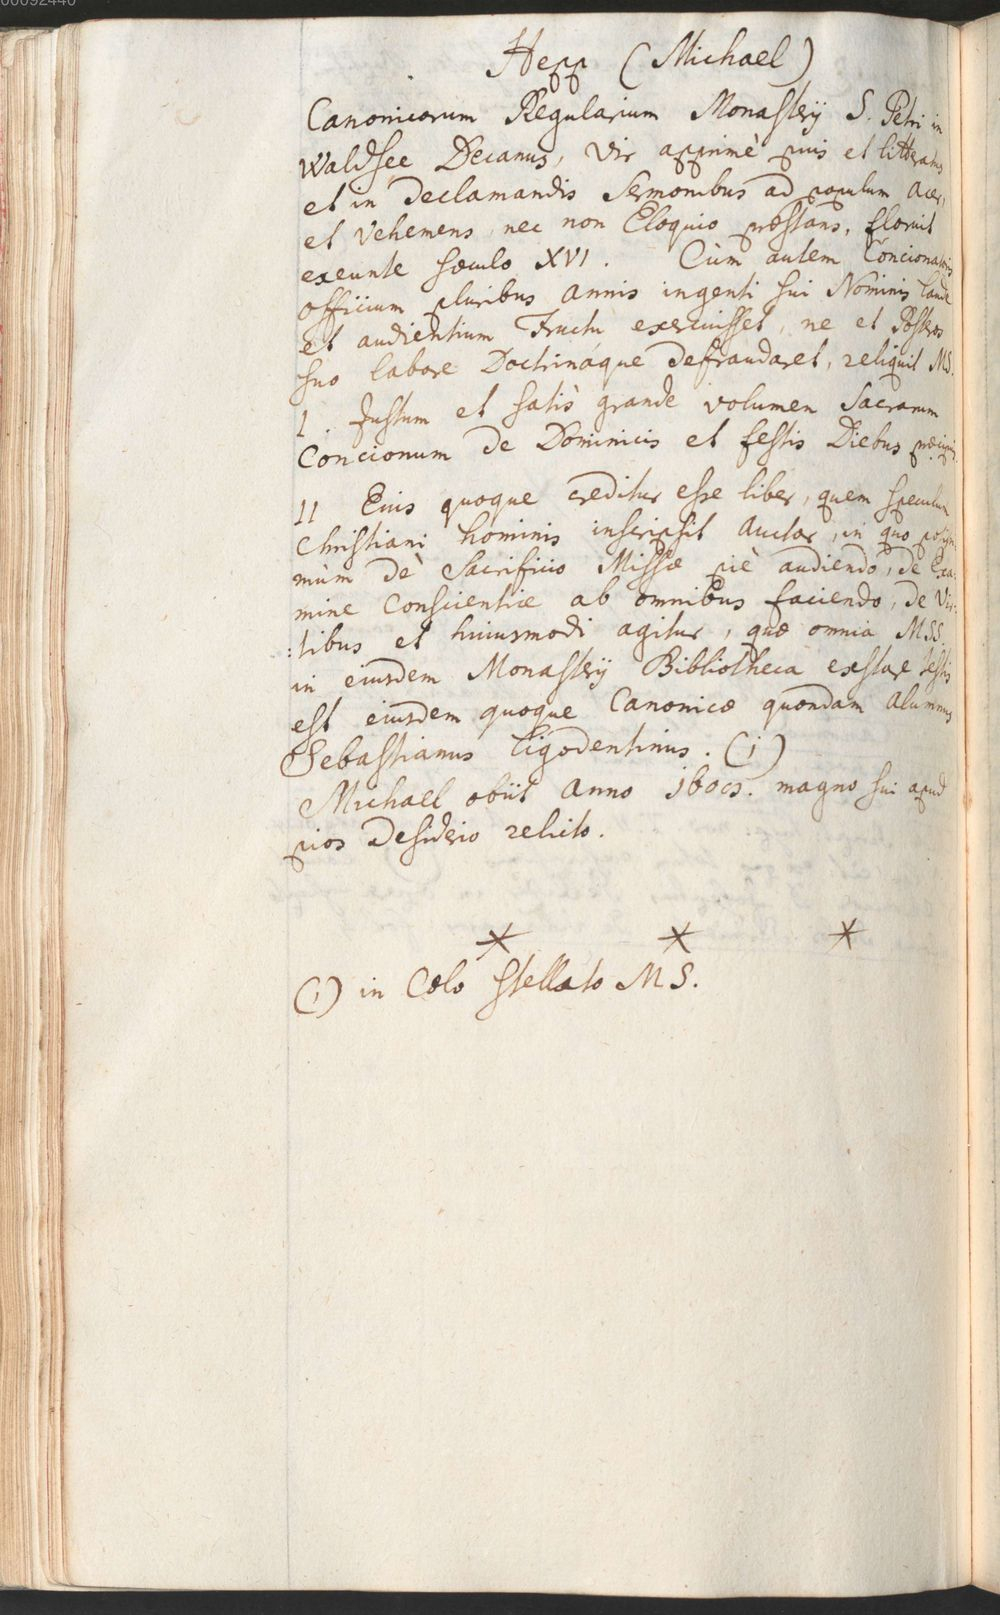 00092440
Hepp (Michael)
Canonicorum Regularium Monasterij S. Petri in
Waldsee Decanus, Vir apprimè pius et litteratus
et in Declamandis Sermonibus ad populum Acer,
et Vehemens, nec non Eloquio præstans, floruit
exeunte sæculo XVI. Cùm autem Concionatoris
officium pluribus annis ingenti sui Nominis laude
et audientium Fructu exercuisset, ne et Posteros
suo labore Doctrináque defraudaret, reliquit MS.
I. Justum et satis grande volumen Sacrarum
Concionum de Dominicis et festis Diebus præcipuis.
II Eius quoque creditur esse liber, quem speculum
Christiani hominis inscripsit Auctor, in quo potissi-
mùm de Sacrificio Missæ piè audiendo, de Exa:
mine Conscientiæ ab omnibus faciendo, de Vir:
:tibus et huiusmodi agitur, quæ omnia MSS.
in eiusdem Monasterij Bibliotheca exstare testis
est eiusdem quoque Canonicæ quondam Alumnus
Sebastianus Ligodentinus. (i)
Michael obiit Anno magno sui apud
pios Desiderio relicto.
(i) in Cœlo stellato MS.